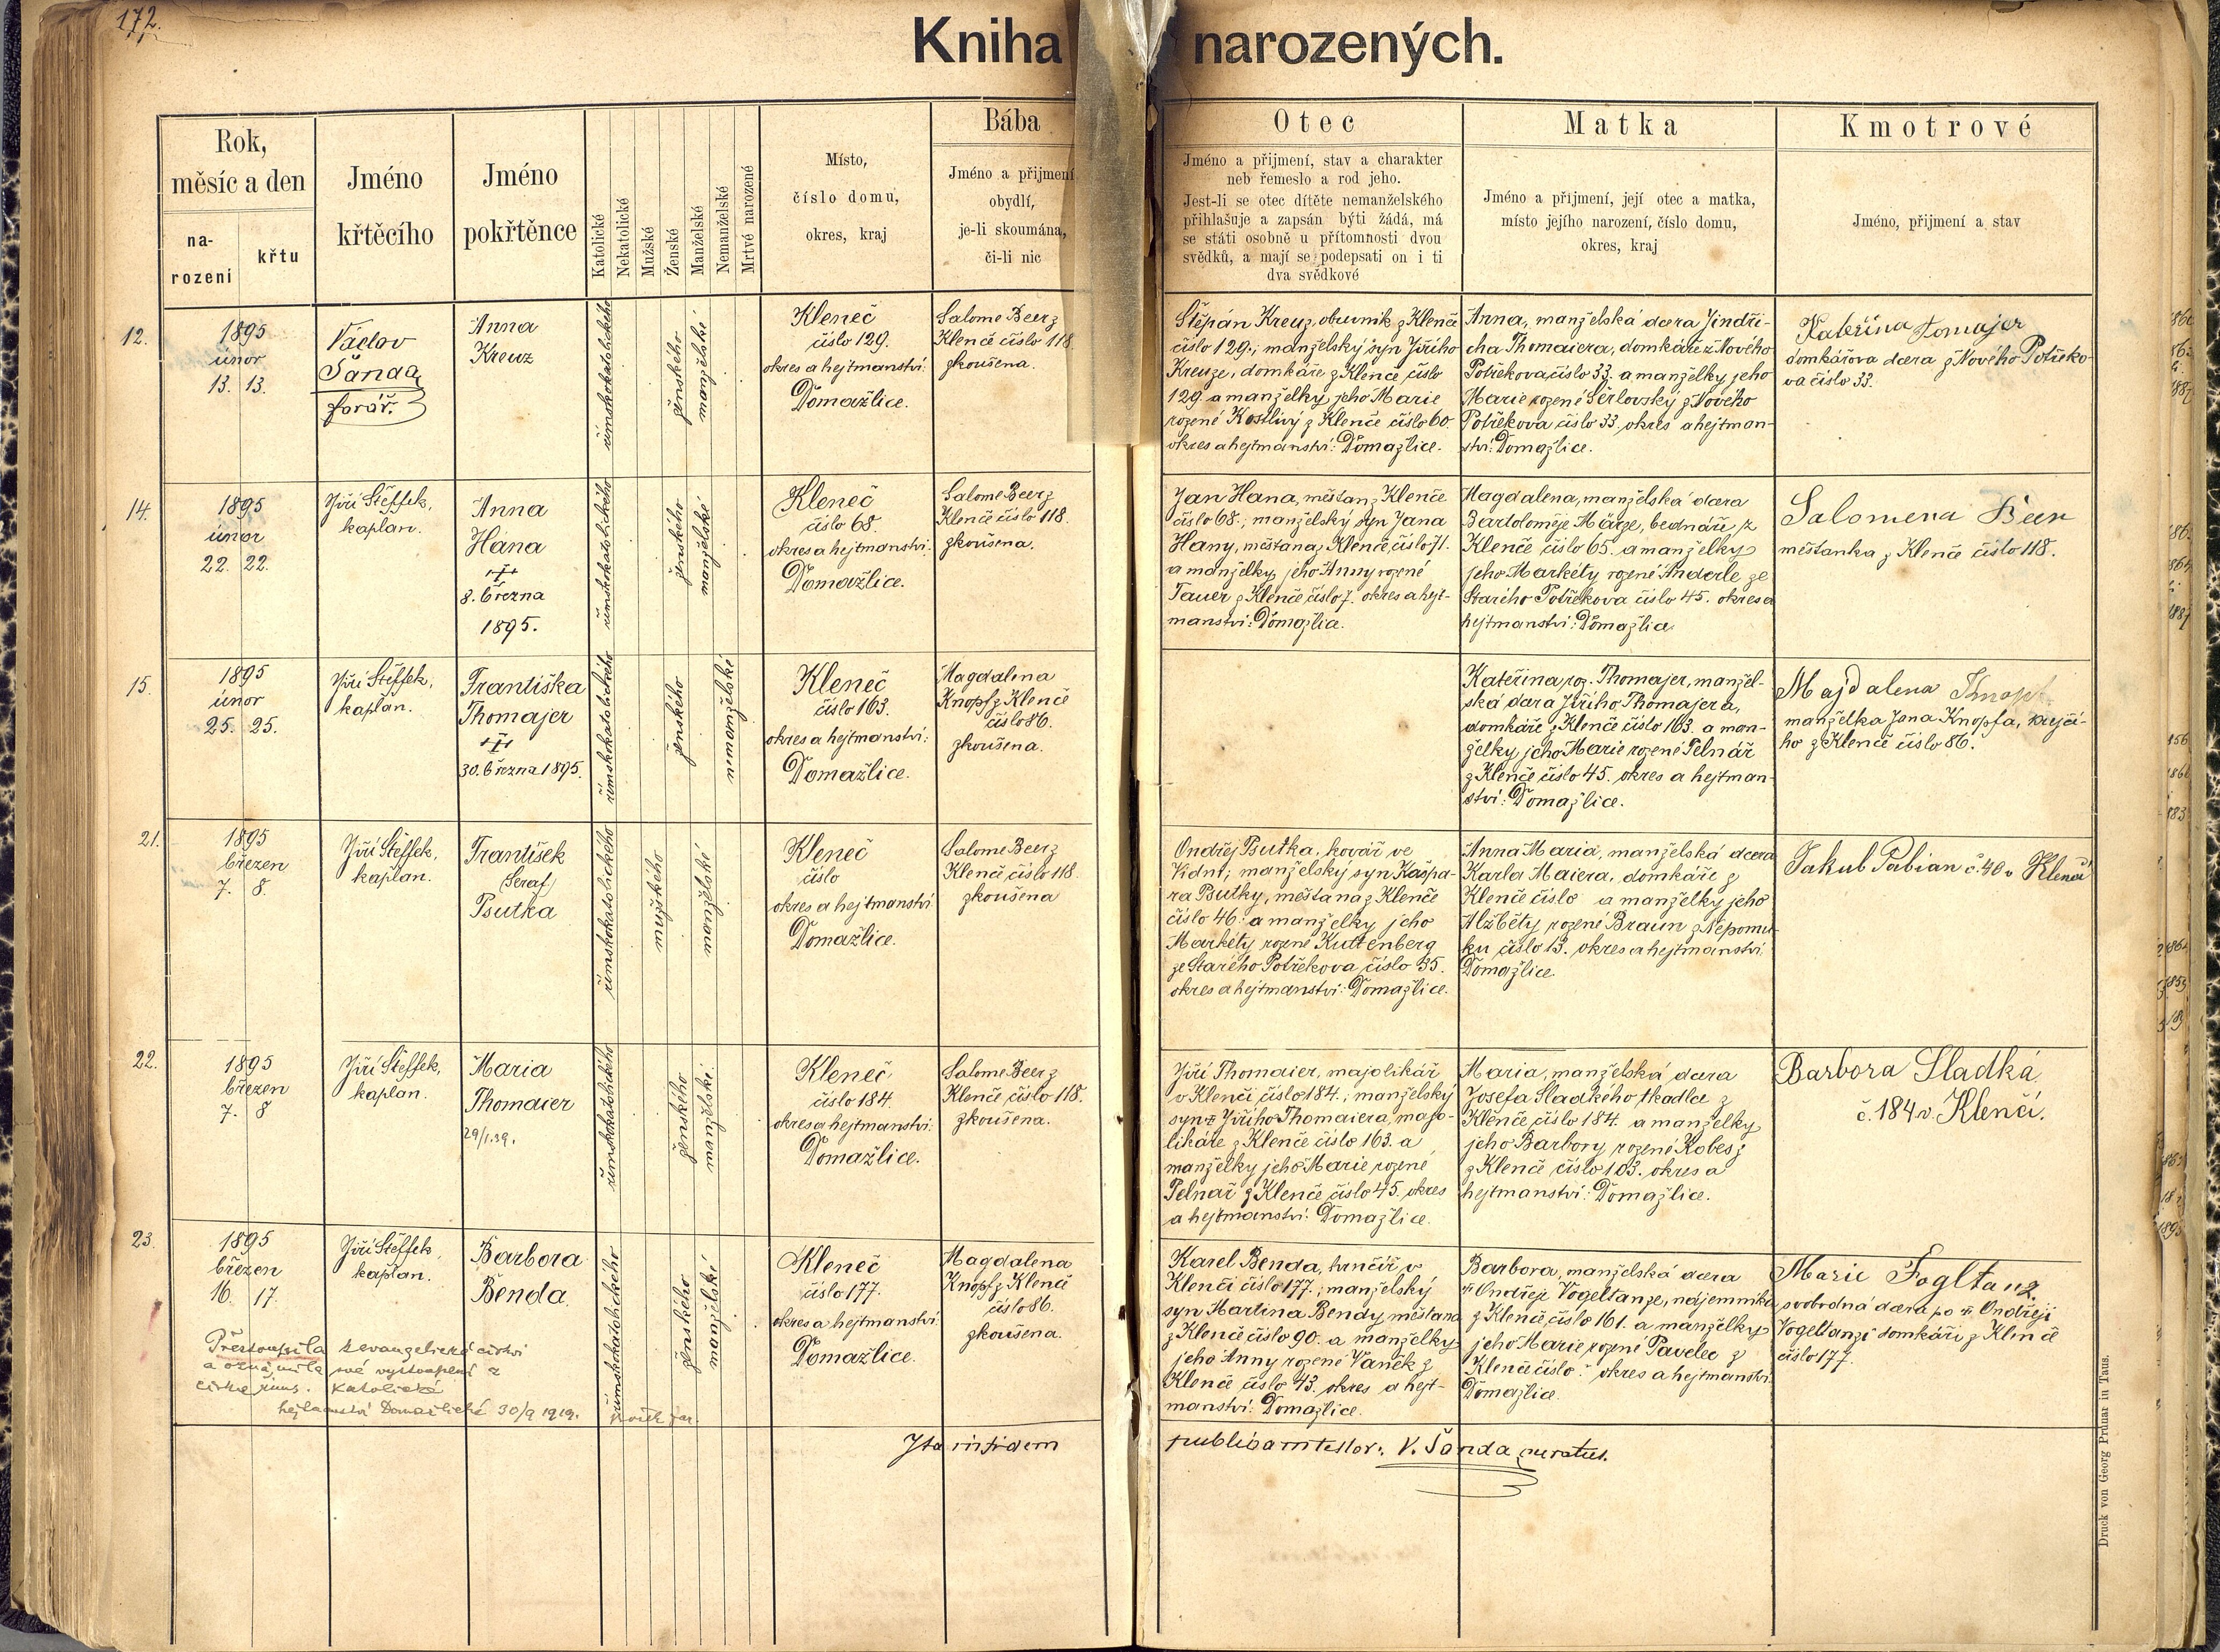 172.
Kniha narozených.
Rok,
měsíc a den
na-
rozeni
křtu
Jméno
křtěcího
Jméno
pokřtěnce
Katolické
Nekatolické
Mužské
Ženské
Manželské
Nemanželské
Mrtvé narozené
Místo,
číslo domu,
okres, kraj
Bába
Jméno a přijmení
obydlí,
je-li skoumána,
či-li nic
Otec
Jméno a přijmení, stav a charakter
neb řemeslo a rod jeho.
Jest-li se otec dítěte nemanželského
přihlašuje a zapsán býti žádá, má
se státi osobně u přítomnosti dvou
svědků, a mají se podepsati on i ti
dva svědkové
Matka
Jméno a přijmení, její otec a matka,
místo jejího narození, číslo domu,
okres, kraj
Kmotrové
Jméno, přijmení a stav
12.
1895
únor
13. 13.
Václav
Šanda,
farář.
Anna
Kreuz
římskokatolického
ženského
manželské
Kleneč
číslo 129.
okres a hejtmanství:
Domažlice.
Salome Beer z
Klenče číslo 118.
zkoušena.
Štěpán Kreuz, obuvník z Klenče
číslo 129.; manželský syn Jiřího
Kreuze, domkáře z Klenče číslo
129. a manželky jeho Marie
rozené Kostlivý z Klenče číslo 60.
okres a hejtmanství: Domažlice.
Anna, manželská dcera Jindři-
cha Thomaiera, domkáře z Nového
Potřekova číslo 33. a manželky jeho
Marie rozené Šerlovský z Nového
Potřekova číslo 33. okres a hejtman-
ství: Domažlice.
Kateřina Tomajer
domkářova dcera z Nového Potřeko-
va číslo 33.
14.
1895
únor
22. 22.
Jiří Šteffek,
kaplan.
Anna
Hana
8. března
1895.
římskokatolického
ženského
manželské
Kleneč
číslo 68.
okres a hejtmanství:
Domažlice.
Salome Beer z
Klenče číslo 118.
zkoušena.
Jan Hana, měšťan z Klenče
číslo 68.; manželský syn Jana
Hany, měšťana z Klenče, číslo 71.
a manželky jeho Anny rozené
Tauer z Klenče číslo 7. okres a hejt-
manství: Domažlice.
Magdalena, manželská dcera
Bartoloměje Märze, bednáře z
Klenče číslo 65. a manželky
jeho Markéty rozené Anderle ze
Starého Potřekova číslo 45. okres a
hejtmanství: Domažlice.
Salomena Beer
měšťanka z Klenče číslo 118.
15.
1895
únor
25. 25.
Jiří Šteffek,
kaplan.
Františka
Thomajer
30. března 1895.
římskokatolického
ženského
nemanželské
Kleneč
číslo 163.
okres a hejtmanství:
Domažlice.
Magdalena
Knopf z Klenče
číslo 86.
zkoušena.
Kateřina, roz. Thomajer, manžel-
ská dcera Jiřího Thomajera,
domkáře z Klenče číslo 163. a man-
želky jeho Marie rozené Pelnář
z Klenče číslo 45. okres a hejtman-
ství: Domažlice.
Majdalena Knopf
manželka Jana Knopfa, krejčí-
ho z Klenče číslo 86.
21.
1895
březen
7. 8.
Jiří Šteffek,
kaplan.
František
Seraf
Psutka
římskokatolického
mužského
manželské
Kleneč
číslo
okres a hejtmanství
Domažlice.
Salome Beer z
Klenče číslo 118.
zkoušena
Ondřej Psutka, kovář ve
Vídni; manželský syn Kašpa-
ra Psutky, měšťana z Klenče
číslo 46. a manželky jeho
Markéty rozené Kuttenberg
ze Starého Potřekova číslo 35.
okres a hejtmanství: Domažlice.
Anna Maria, manželská dcera
Karla Maiera, domkáře z
Klenče číslo a manželky jeho
Alžběty rozené Braun z Nepomu-
ku číslo 13. okres a hejtmanství
Domažlice.
Jakub Pabian č. 40 v Klenčí
22.
1895
březen
7. 8
Jiří Šteffek,
kaplan.
Maria
Thomaier
29/1.39.
římskokatolického
ženského
manželské
Kleneč
číslo 184.
okres a hejtmanství:
Domažlice.
Salome Beer z
Klenče číslo 118.
zkoušena.
Jiří Thomaier, majolikář
v Klenčí číslo 184.; manželský
syn Jiřího Thomaiera, majo-
likáře z Klenče číslo 163. a
manželky jeho Marie rozené
Pelnář z Klenče číslo 45. okres
a hejtmanství: Domažlice.
Maria, manželská dcera
Josefa Sladkého tkadlce z
Klenče číslo 184. a manželky
jeho Barbory rozené Kobes z
z Klenče číslo 103. okres a
hejtmanství: Domažlice.
Barbora Sladká
č. 184 v. Klenčí.
23.
1895
březen
16. 17.
Jiří Šteffek,
kaplan.
Barbora
Benda
římskokatolického
ženského
manželské
Kleneč
číslo 177.
okres a hejtmanství:
Domažlice.
Magdalena
Knopf z Klenče
číslo 86.
zkoušena.
Karel Benda, hrnčíř v
Klenčí číslo 177.; manželský
syn Martina Bendy, měšťana
z Klenče číslo 90. a manželky
jeho Anny rozené Vaněk z
Klenče číslo 43. okres a hejt-
manství: Domažlice.
Barbora, manželská dcera
Ondřeje Vogeltanze, nájemníka
z Klenče číslo 161. a manželky
jeho Marie rozené Pavelec z
Klenče číslo okres a hejtmanství
Domažlice.
Marie Foglta nz
svobodná dcera po Ondřeji
Vogeltanzi domkáři z Klenče
číslo 177.
Přestoupila k evangelické církvi
a oznámila své vystoupení z
církve řims. katolické
hejtmanství Domažlické 30/9 1919.
Ita in fidem
publicam testor: V. Šanda, curatus.
Druck von Georg Prunar in Taus.